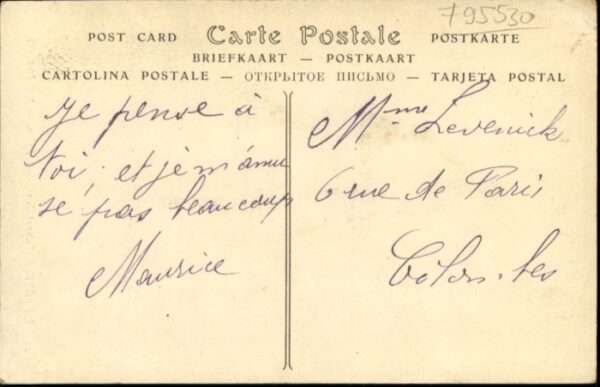 795530
POST CARD Carte Postale POSTKARTE
BRIEFKAART — POSTKAART
CARTOLINA POSTALE — ОТКРЫТОЕ ПИСЬМО — TARJETA POSTAL
Je pense à
toi, et je m'amu
se pas beaucoup
Maurice
Mme Levenick
6 rue de Paris
Colombes